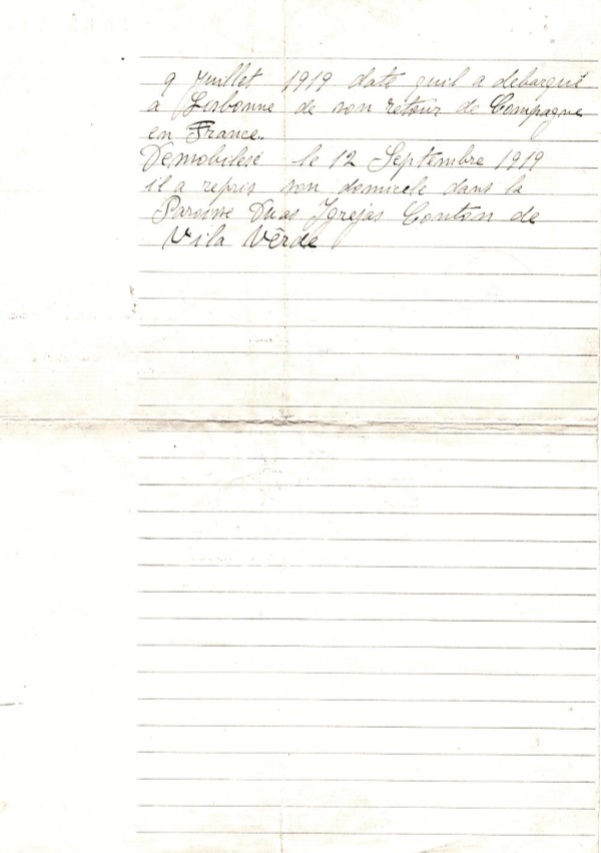 9 Juillet 1919 date quil a debarqué
a Lisbonne de son retour de Compagne
en France.
Demobilesé le 12 Septembre 1919
il a repris son domicele dans la
Paroisse Duas Igrejas Conton de
Vila Vêrde